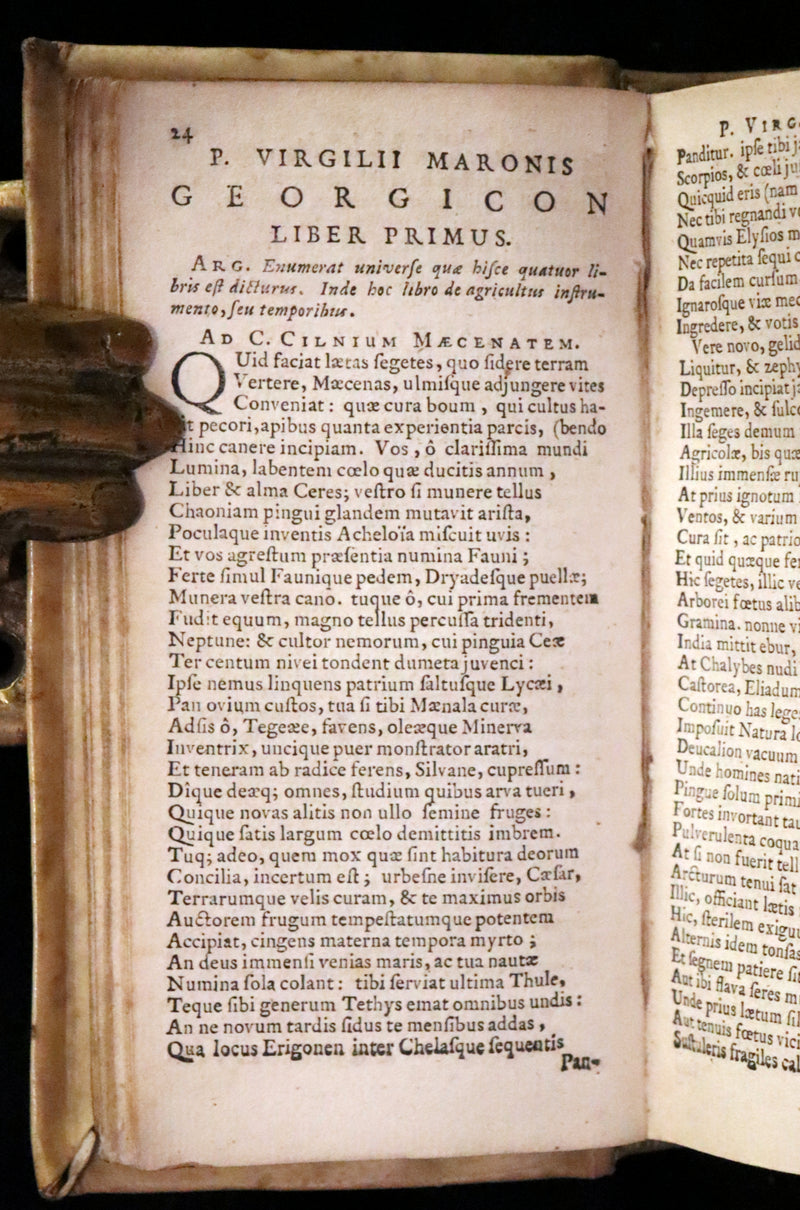 24
P. VIRGILII MARONIS
GEORGICON
LIBER PRIMUS.
ARG. Enumerat universe quæ hiſce quatuor li-
bris eſt dicturus. Inde hoc libro de agricultus inſtru-
mento, ſeu temporibus.
AD C. CILNIUM MÆCENATEM.
QUid faciat lætas ſegetes, quo ſidere terram
Vertere, Mæcenas, ulmiſque adjungere vites
Conveniat: quæ cura boum, qui cultus ha-
it pecori, apibus quanta experientia parcis, (bendo
Hinc canere incipiam. Vos, ô clariſſima mundi
Lumina, labentem cœlo quæ ducitis annum,
Liber & alma Ceres; veſtro ſi munere tellus
Chaoniam pingui glandem mutavit ariſta,
Poculaque inventis Acheloïa miſcuit uvis:
Et vos agreſtum præſentia numina Fauni;
Ferte ſimul Faunique pedem, Dryadeſque puellæ;
Munera veſtra cano. tuque ô, cui prima frementem
Fudit equum, magno tellus percuſſa tridenti,
Neptune: & cultor nemorum, cui pinguia Ceæ
Ter centum nivei tondent dumeta juvenci:
Ipſe nemus linquens patrium ſaltuſque Lycæi,
Pan ovium cuſtos, tua ſi tibi Mænala curæ,
Adſis ô, Tegeæe, favens, oleæque Minerva
Inventrix, uncique puer monſtrator aratri,
Et teneram ab radice ferens, Silvane, cupreſſum:
Dîque deæq; omnes, ſtudium quibus arva tueri,
Quique novas alitis non ullo ſemine fruges:
Quique ſatis largum cœlo demittitis imbrem.
Tuq; adeo, quem mox quæ ſint habitura deorum
Concilia, incertum eſt; urbeſne inviſere, Cæſar,
Terrarumque velis curam, & te maximus orbis
Auctorem frugum tempeſtatumque potentem
Accipiat, cingens materna tempora myrto;
An deus immenſi venias maris, ac tua nautæ
Numina ſola colant: tibi ſerviat ultima Thule,
Teque ſibi generum Tethys emat omnibus undis:
An ne novum tardis ſidus te menſibus addas,
Qua locus Erigonen inter Chelaſque ſequentis
Pan-
P. VIRG
Panditur. ipſe tibi j
Scorpios, & cœli ju
Quicquid eris (nam
Nec tibi regnandi v
Quamvis Elyſios m
Nec repetita ſequi c
Da facilem curſum
Ignaroſque viæ mec
Ingredere, & votis
Vere novo, gelid
Liquitur, & zephy
Depreſſo incipiat j
Ingemere, & ſulco
Illa ſeges demum
Agricolæ, bis quæ
Illius immenſæ ru
At prius ignotum
Ventos, & varium
Cura ſit, ac patrio
Et quid quæque fe
Hic ſegetes, illic ve
Arborei fœtus alib
Gramina. nonne vi
India mittit ebur,
At Chalybes nudi
Caſtorea, Eliadum
Continuo has lege
Impoſuit Natura lo
Deucalion vacuum
Unde homines nati
Pingue ſolum primi
Fortes invortant tau
Pulverulenta coqua
At ſi non fuerit tell
Arcturum tenui ſat
Illic, officiant lætis
Hic, ſterilem exigu
Alternis idem tonſas
Et ſegnem patiere ſi
Aut ibi flava ſeres m
Unde prius lætum ſil
Aut tenuis fœtus vici
Suſtuleris fragiles cal